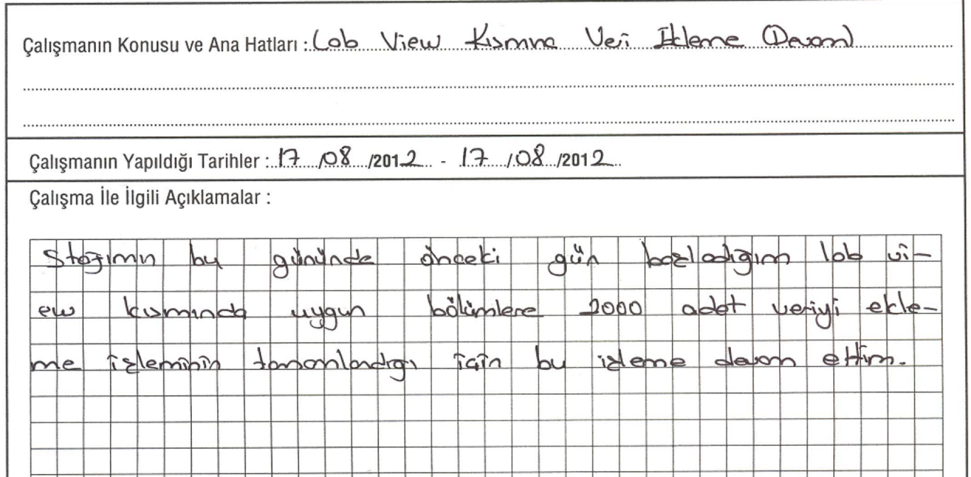 Çalışmanın Konusu ve Ana Hatları : Lab View Kısmına Veri Ekleme (Devam)
Çalışmanın Yapıldığı Tarihler : 17 /08 /2012 - 17 /08 /2012
Çalışma İle İlgili Açıklamalar :
Stajımın bu gününde önceki gün başladığım lab vi-
ew kısmında uygun bölümlere 2000 adet veriyi ekle-
me işleminin tamamlandığı için bu işleme devam ettim.